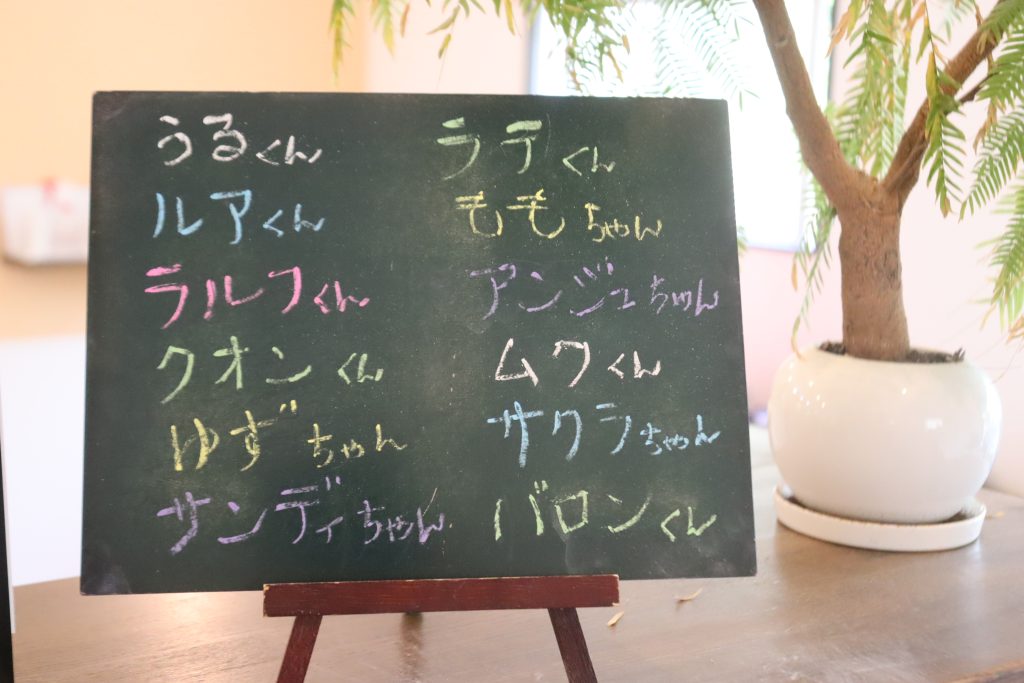 うるくん
ルアくん
ラルフくん
クオンくん
ゆずちゃん
サンディちゃん
ラテくん
ももちゃん
アンジュちゃん
ムクくん
サクラちゃん
バロンくん